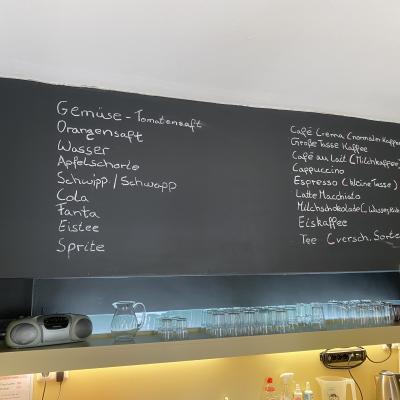 Gemüse - Tomatensaft
Orangensaft
Wasser
Apfelschorle
Schwipp / Schwapp
Cola
Fanta
Eistee
Sprite
Café Crema (normaler Kaffee
Große Tasse Kaffee
Café au Lait (Milchkaffee)
Cappuccino
Espresso (kleine Tasse)
Latte Macchiato
Milchschokolade (
Eiskaffee
Tee (versch. Sorte